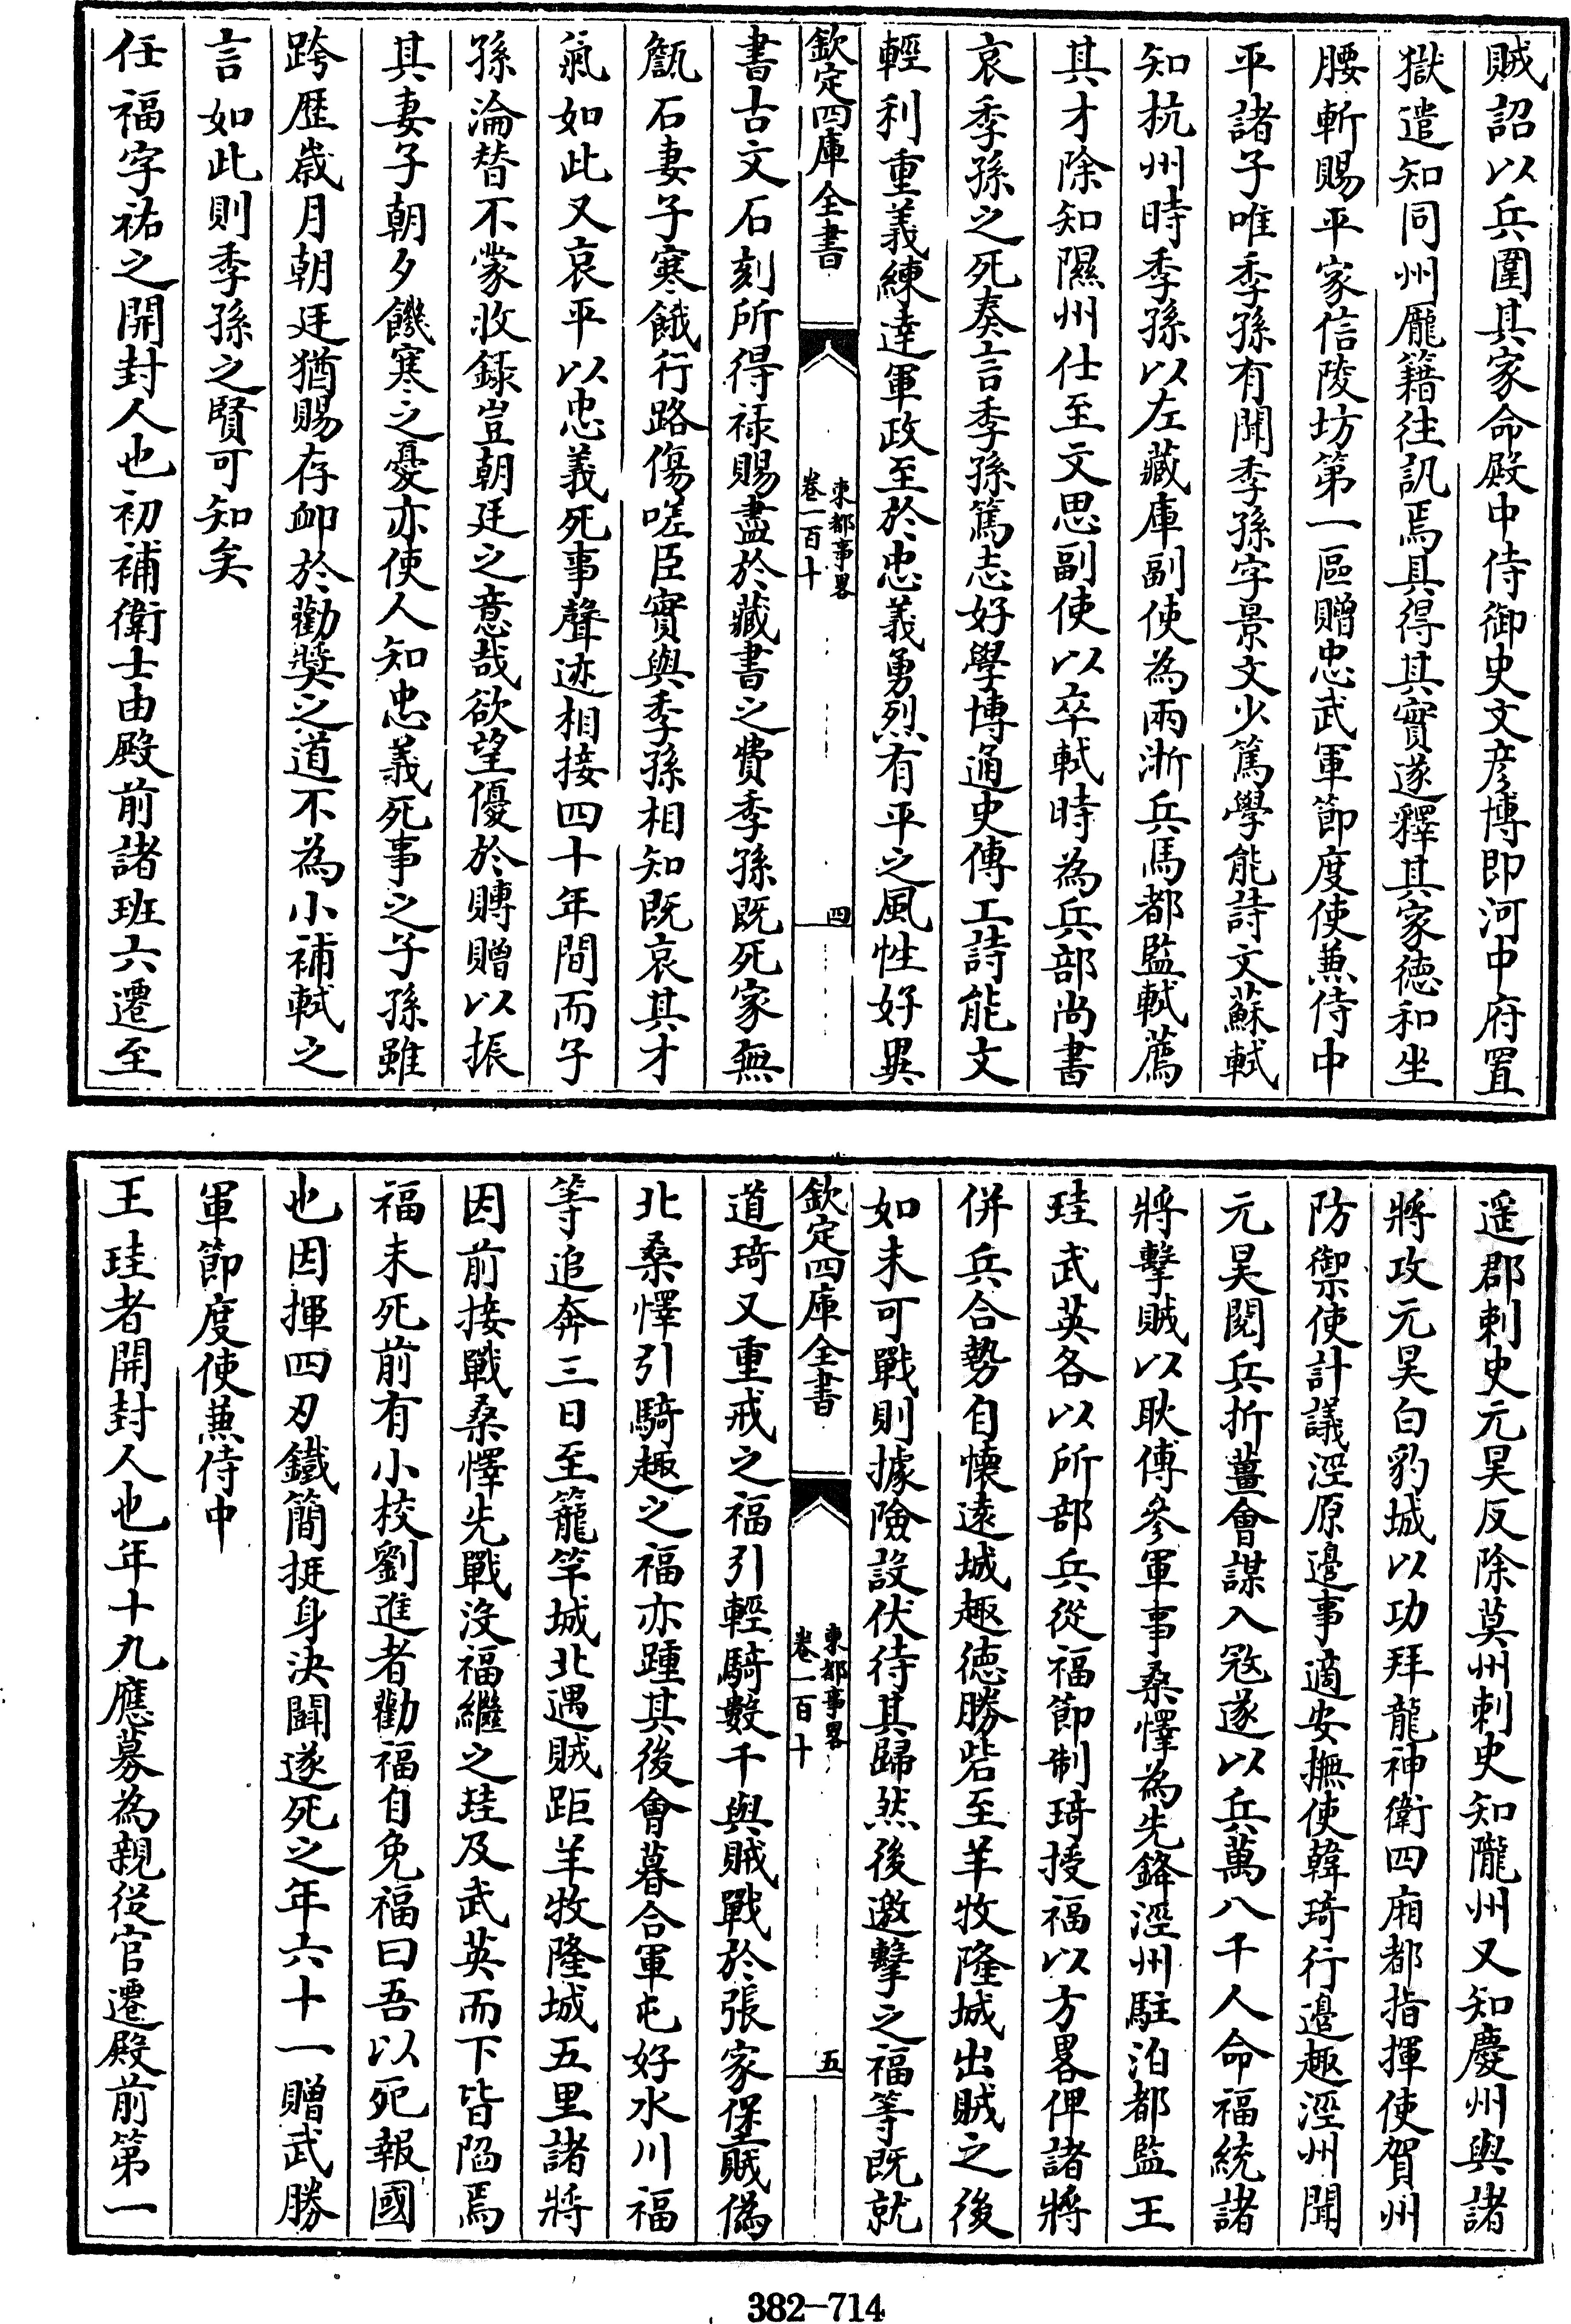 賊詔以兵圍其家命殿中侍御史文彦博即河中府置
獄遣知同州龎籍往訊焉具得其實遂釋其家徳和坐
腰斬賜平家信陵坊第一區贈忠武軍節度使兼侍中
平諸子唯季孫有聞季孫字景文少篤學能詩文蘇軾
知杭州時季孫以左藏庫副使為兩浙兵馬都監軾薦
其才除知隰州仕至文思副使以卒軾時為兵部尚書
哀季孫之死奏言季孫篤志好學博通史傳工詩能文
輕利重義練達軍政至於忠義勇烈有平之風性好異
欽定四庫全書
東都事畧
卷一百十
四
書古文石刻所得禄賜盡於藏書之費季孫既死家無
甔石妻子寒餓行路傷嗟臣實與季孫相知既哀其才
氣如此又哀平以忠義死事聲迹相接四十年間而子
孫淪替不蒙收錄豈朝廷之意哉欲望優於賻贈以振
其妻子朝夕饑寒之憂亦使人知忠義死事之子孫雖
跨歴歳月朝廷猶賜存卹於勸奬之道不為小補軾之
言如此則季孫之賢可知矣
任福字祐之開封人也初補衛士由殿前諸班六遷至
遥郡刺史元昊反除莫州刺史知隴州又知慶州與諸
將攻元昊白豹城以功拜龍神衛四廂都指揮使賀州
防禦使計議涇原邊事適安撫使韓琦行邊趣涇州聞
元昊閱兵折薑會謀入寇遂以兵萬八千人命福統諸
將擊賊以耿傅參軍事桑懌為先鋒涇州駐泊都監王
珪武英各以所部兵從福節制琦授福以方畧俾諸將
併兵合勢自懐遠城趣徳勝砦至羊牧隆城出賊之後
如未可戰則據險設伏待其歸然後邀擊之福等既就
欽定四庫全書
東都事畧
卷一百十
五
道琦又重戒之福引輕騎數千與賊戰於張家堡賊偽
北桑懌引騎趣之福亦踵其後會暮合軍屯好水川福
等追奔三日至籠竿城北遇賊距羊牧隆城五里諸將
因前接戰桑懌先戰沒福繼之珪及武英而下皆陷焉
福未死前有小校劉進者勸福自免福曰吾以死報國
也因揮四刃鐵簡挺身決鬬遂死之年六十一贈武勝
軍節度使兼侍中
王珪者開封人也年十九應募為親從官遷殿前第一
382-714